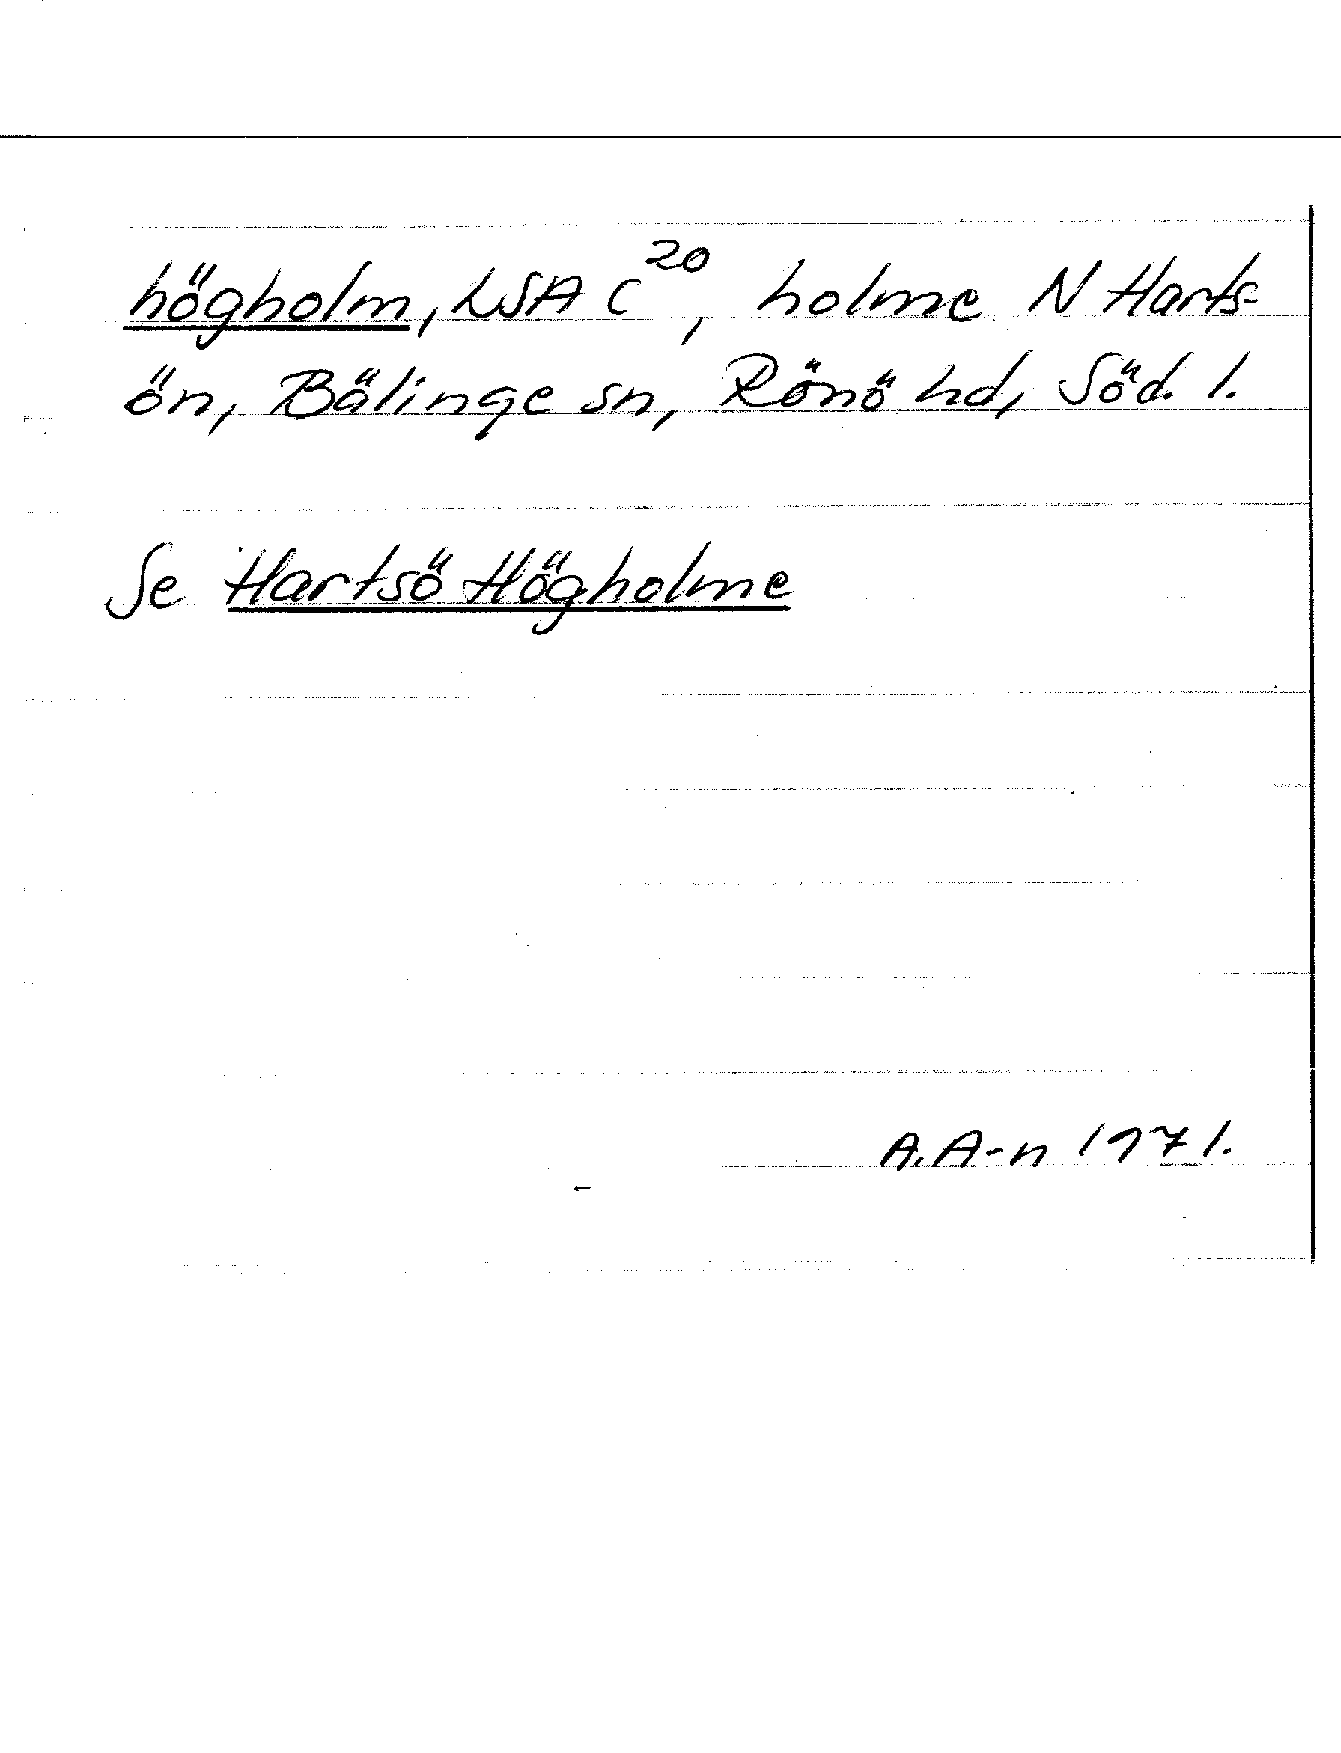 högholm, LSA C²⁰, holme N Harts-
ön, Bälinge sn, Rönö hd, Söd. l.
Se Hartsö Högholme
A. A-n 1971.